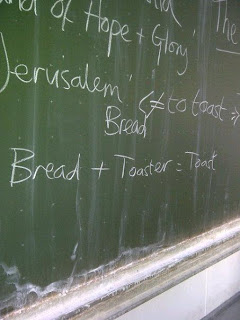 of Hope + Glory'
The
Jerusalem'
<= to toast =>
Bread
Bread + Toaster = Toast